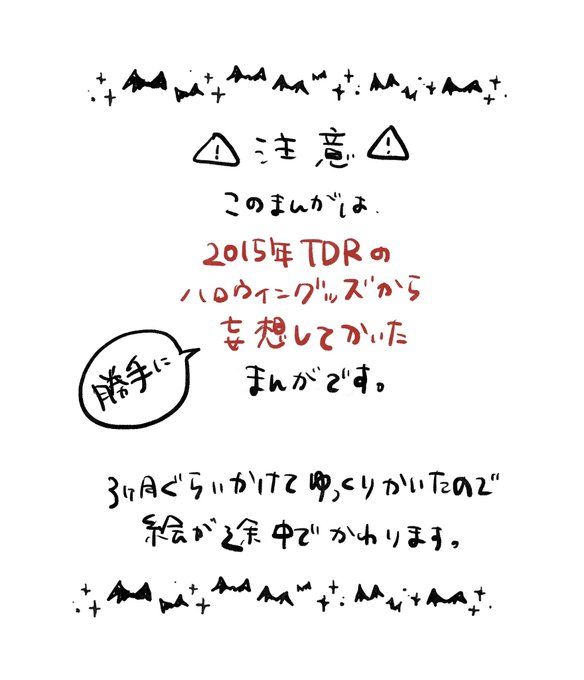 ⚠注意⚠
このまんがは、
2015年TDRの
ハロウィングッズから
勝手に
妄想してかいた
まんがです。
3ヶ月ぐらいかけてゆっくりかいたので
絵が途中でかわります。